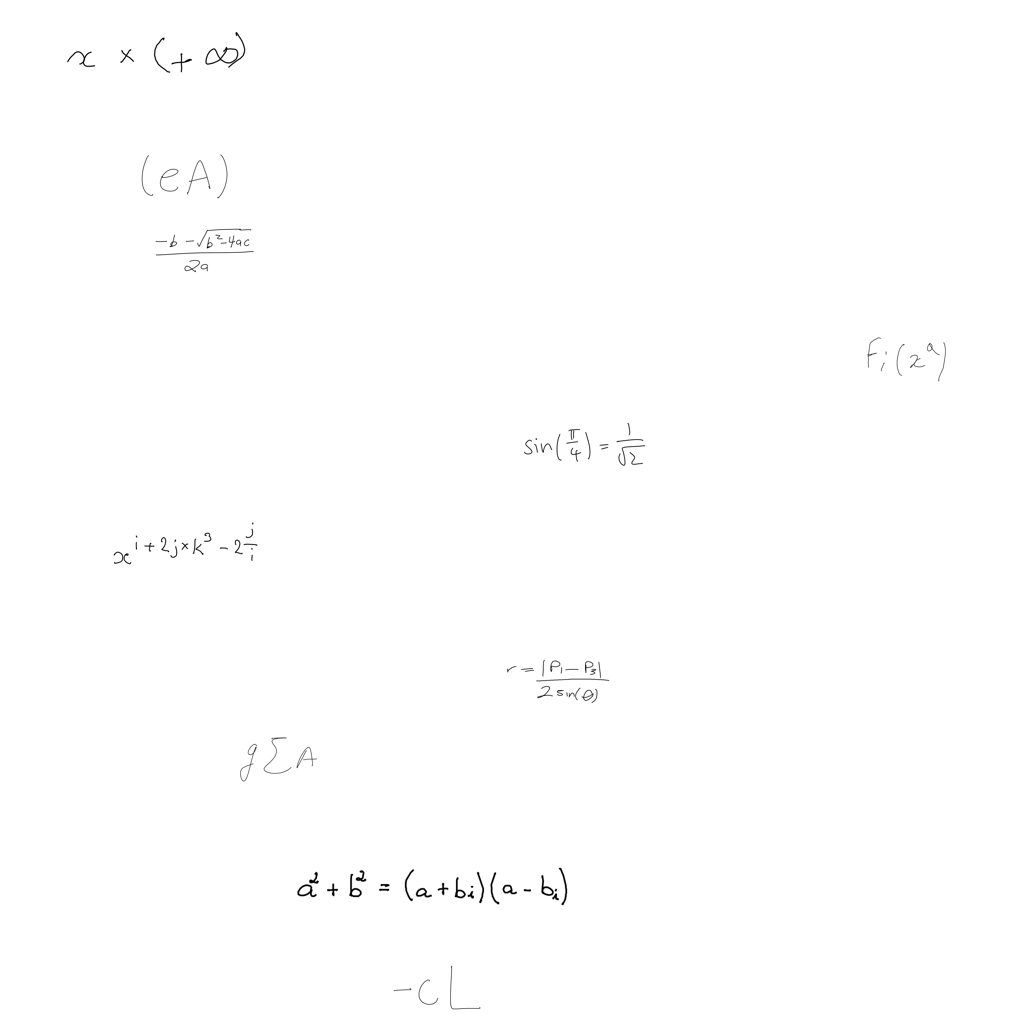 x × (+ ∞)
(eA)
\frac{-b-\sqrt{b^2-4ac}}{2a}
F_i(z^a)
sin(\frac{π}{4}) = \frac{1}{\sqrt{2}}
x^{i+2j×k^3-2\frac{j}{i}}
r = \frac{|P_1-P_3|}{2 sin(θ)}
g∑A
a^2 + b^2 = (a+bi)(a-bi)
-cL